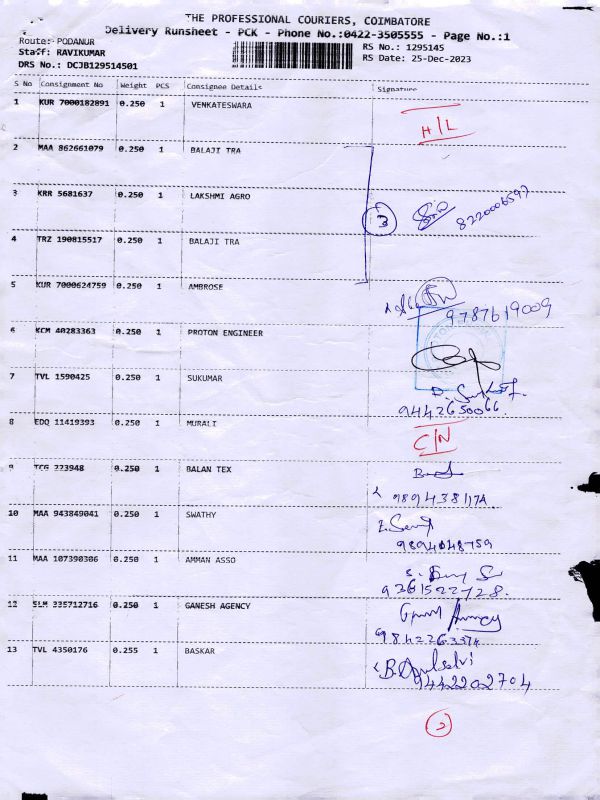 THE PROFESSIONAL COURIERS, COIMBATORE
Delivery Runsheet - PCK - Phone No.:0422-3505555 - Page No.:1
Route: PODANUR
Staff: RAVIKUMAR
DRS No.: DCJB129514501
RS No.: 1295145
RS Date: 25-Dec-2023
S No Consignment No Weight PCS Consignee Details Signature
1 KUR 7000182891 0.250 1 VENKATESWARA
H/L
2 MAA 862661079 0.250 1 BALAJI TRA
3 KRR 5681637 0.250 1 LAKSHMI AGRO
3 8220006597
4 TRZ 190815517 0.250 1 BALAJI TRA
5 KUR 7000624759 0.250 1 AMBROSE
9787619009
6 KCM 40283363 0.250 1 PROTON ENGINEER
7 TVL 1590425 0.250 1 SUKUMAR
9442650066.
8 EDQ 11419393 0.250 1 MURALI
C/N
9 TCG 223948 0.250 1 BALAN TEX
10 MAA 943849041 0.250 1 SWATHY
9894048759
11 MAA 107390306 0.250 1 AMMAN ASSO
9361522728.
12 SLM 335712716 0.250 1 GANESH AGENCY
13 TVL 4350176 0.255 1 BASKAR
9442202704
2